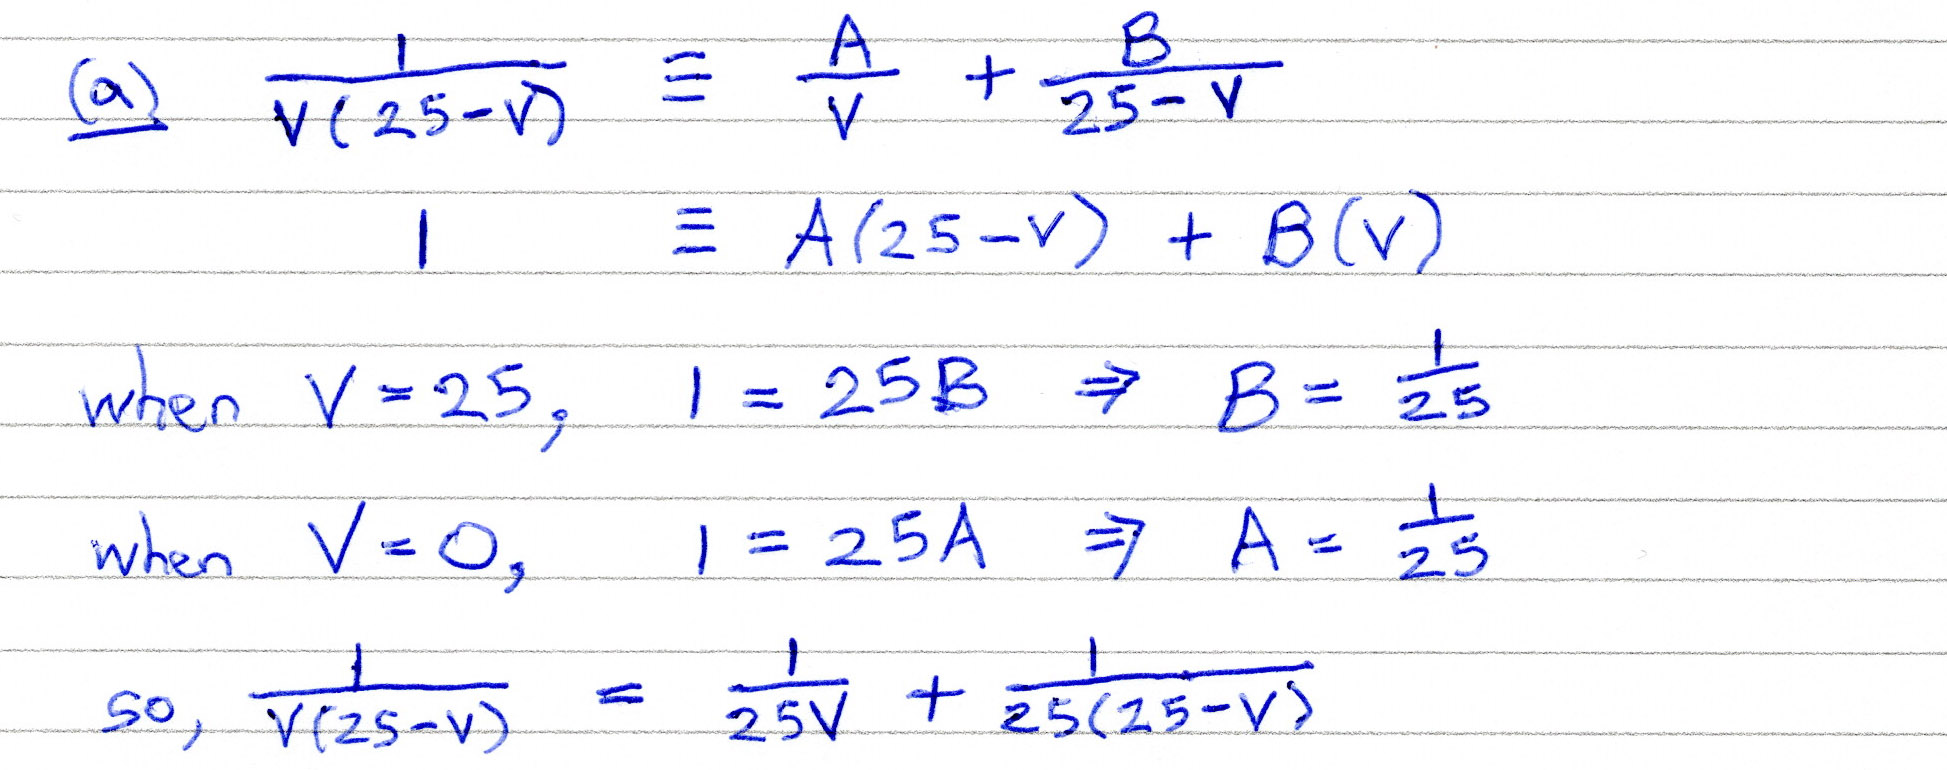 (a) 1/V(25-V) ≡ A/V + B/25-V
1 ≡ A(25-V) + B(V)
when V=25, 1 = 25B ⇒ B = 1/25
when V=0, 1 = 25A ⇒ A = 1/25
so, 1/V(25-V) = 1/25V + 1/25(25-V)